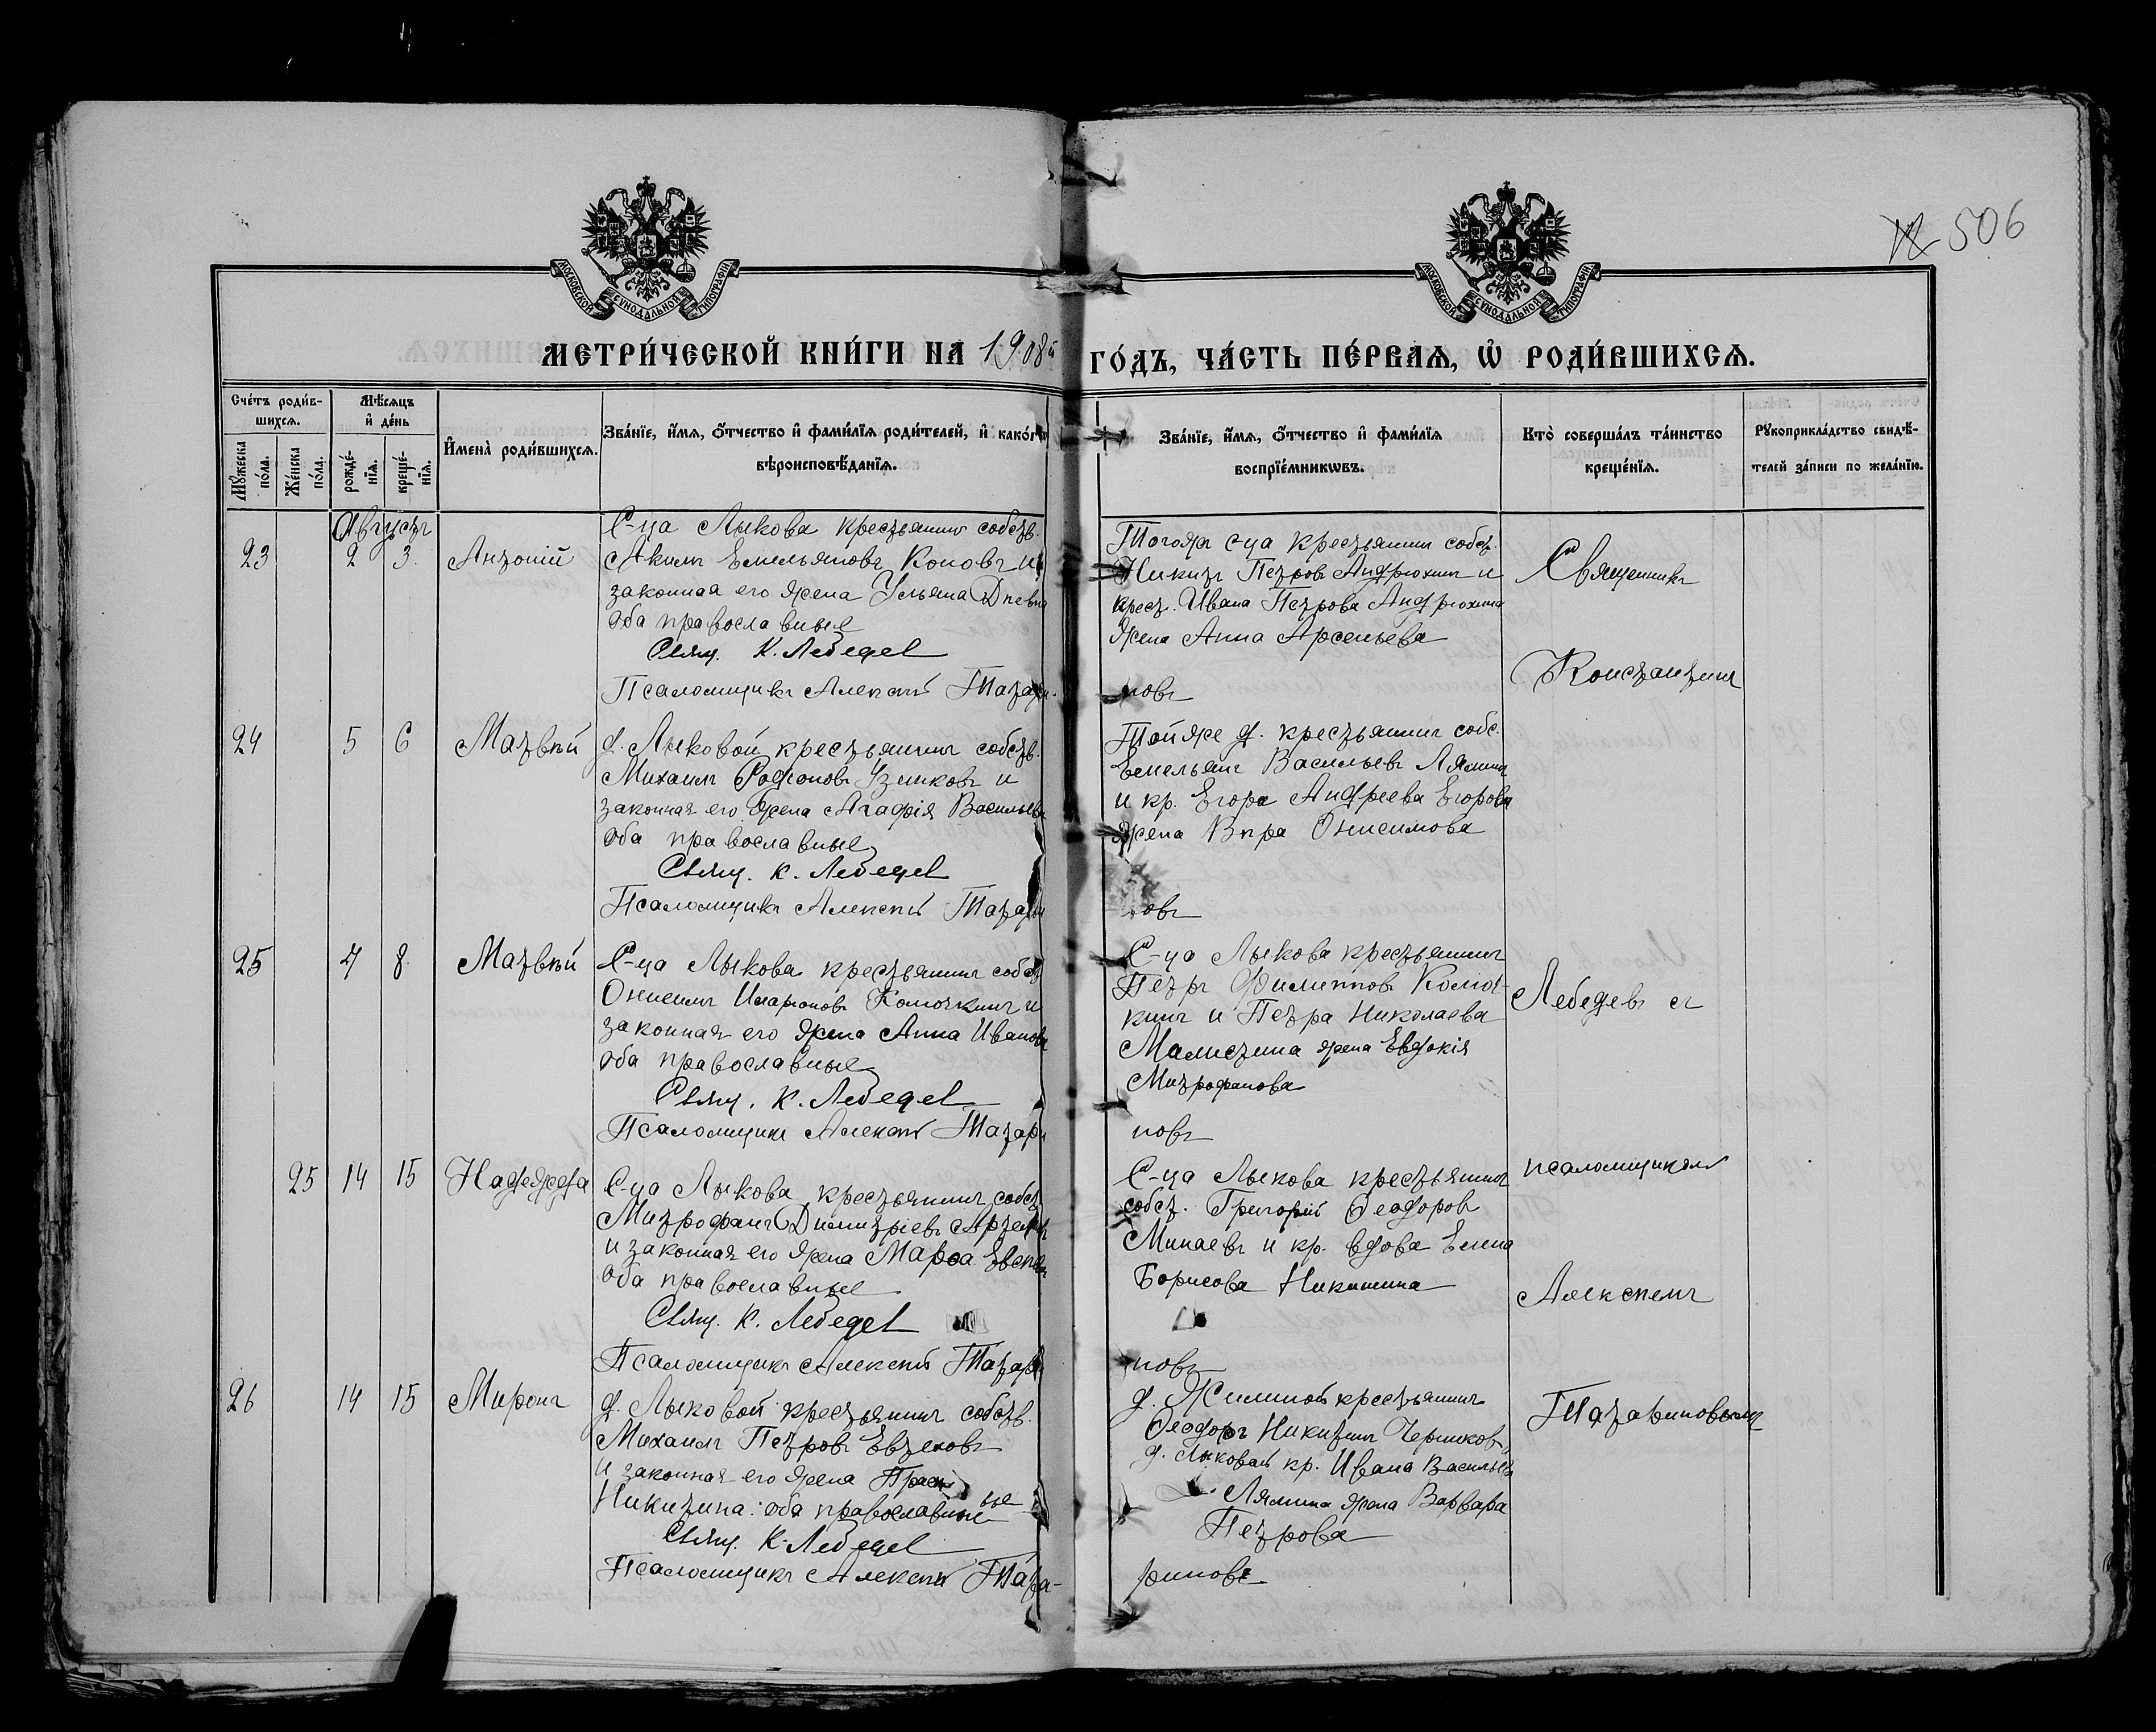 506
МОСКОВСКОЙ СѴНОДАЛЬНОЙ ТИПОГРАФІИ
МОСКОВСКОЙ СѴНОДАЛЬНОЙ ТИПОГРАФІИ
МЕТРИ́ЧЕСКОЙ КНИ́ГИ НА 1908й ГО́ДЪ, ЧА́СТЬ ПЕ́РВАЯ, Ѡ҆ РОДИ́ВШИХСѦ.
Сче́тъ роди́в-
шихсѧ.
Мꙋ́жеска по́ла.
Же́нска по́ла.
Мѣ́сѧцъ и҆ де́нь
рожде́-нїѧ.
креще́-нїѧ.
И҆мена̀ роди́вшихсѧ.
Зва́нїе, и҆́мѧ, ѻ҆́тчество и҆ фами́лїѧ роди́телей, и҆ како́гѡ
вѣроисповѣ́данїѧ.
Зва́нїе, и҆́мѧ, ѻ҆́тчество и҆ фами́лїѧ
воспрїе́мникѡвъ.
Кто̀ соверша́лъ та́инство
креще́нїѧ.
Рꙋкоприкла́дство свидѣ́-
телей за́писи по жела́нїю.
Августъ
23 2 3 Антоній
С-ца Лыкова крестьянинъ собств.
Акимъ Емельяновъ Коновъ и
законная его жена Ульяна
оба православные
Свящ. К. Лебедев
Псаломщикъ Алексѣй Татари-
новъ
Тогоже с-ца крестьянинъ собст.
Никита Петровъ Андрюхинъ и
крест. Ивана Петрова Андрюхина
жена Анна Арсеньева
Священникъ
Константинъ
24 5 6 Матвѣй
д. Лыковой крестьянинъ собств.
Михаилъ Родіоновъ и
законная его жена Агафія Васильева
оба православные
Свящ. К. Лебедев
Псаломщикъ Алексѣй Татари
новъ
Той же д. крестьянинъ собс.
Емельянъ Васильевъ Лялинъ
и кр. Егора Андреева Егорова
жена Вѣра Онисимова
25 7 8 Матвѣй
С-ца Лыкова крестьянинъ собст
Онисимъ Иларіоновъ и
законная его жена Анна Иванова
оба православные
Свящ. К. Лебедев
Псаломщикъ Алексѣй Татари
новъ
С-ца Лыкова крестьянинъ
Петръ Филипповъ
кинъ и Петра Николаева
жена Евдокія
Митрофанова
Лебедевъ съ
25 14 15 Надежда
С-ца Лыкова крестьянинъ собст
Митрофанъ Димитріевъ
и законная его жена Марѳа
оба православные
Свящ. К. Лебедев
Псаломщикъ Алексѣй Татари
новъ
С-ца Лыкова крестьянинъ
собст. Григорій Ѳеодоровъ
Минаевъ и кр. вдова Елена
Борисова Никишина
псаломщикомъ
Алексѣемъ
26 14 15 Миронъ
д. Лыковой крестьянинъ собств.
Михаилъ Петровъ Евтеховъ
и законная его жена
Никитина: оба православные
Свящ. К. Лебедев
Псаломщикъ Алексѣй Тата-
риновъ
д. Жилиной крестьянинъ
Ѳеодоръ Никитинъ
д. Лыковой кр. Ивана Васильева
Лялина жена Варвара
Петрова
Татариновымъ